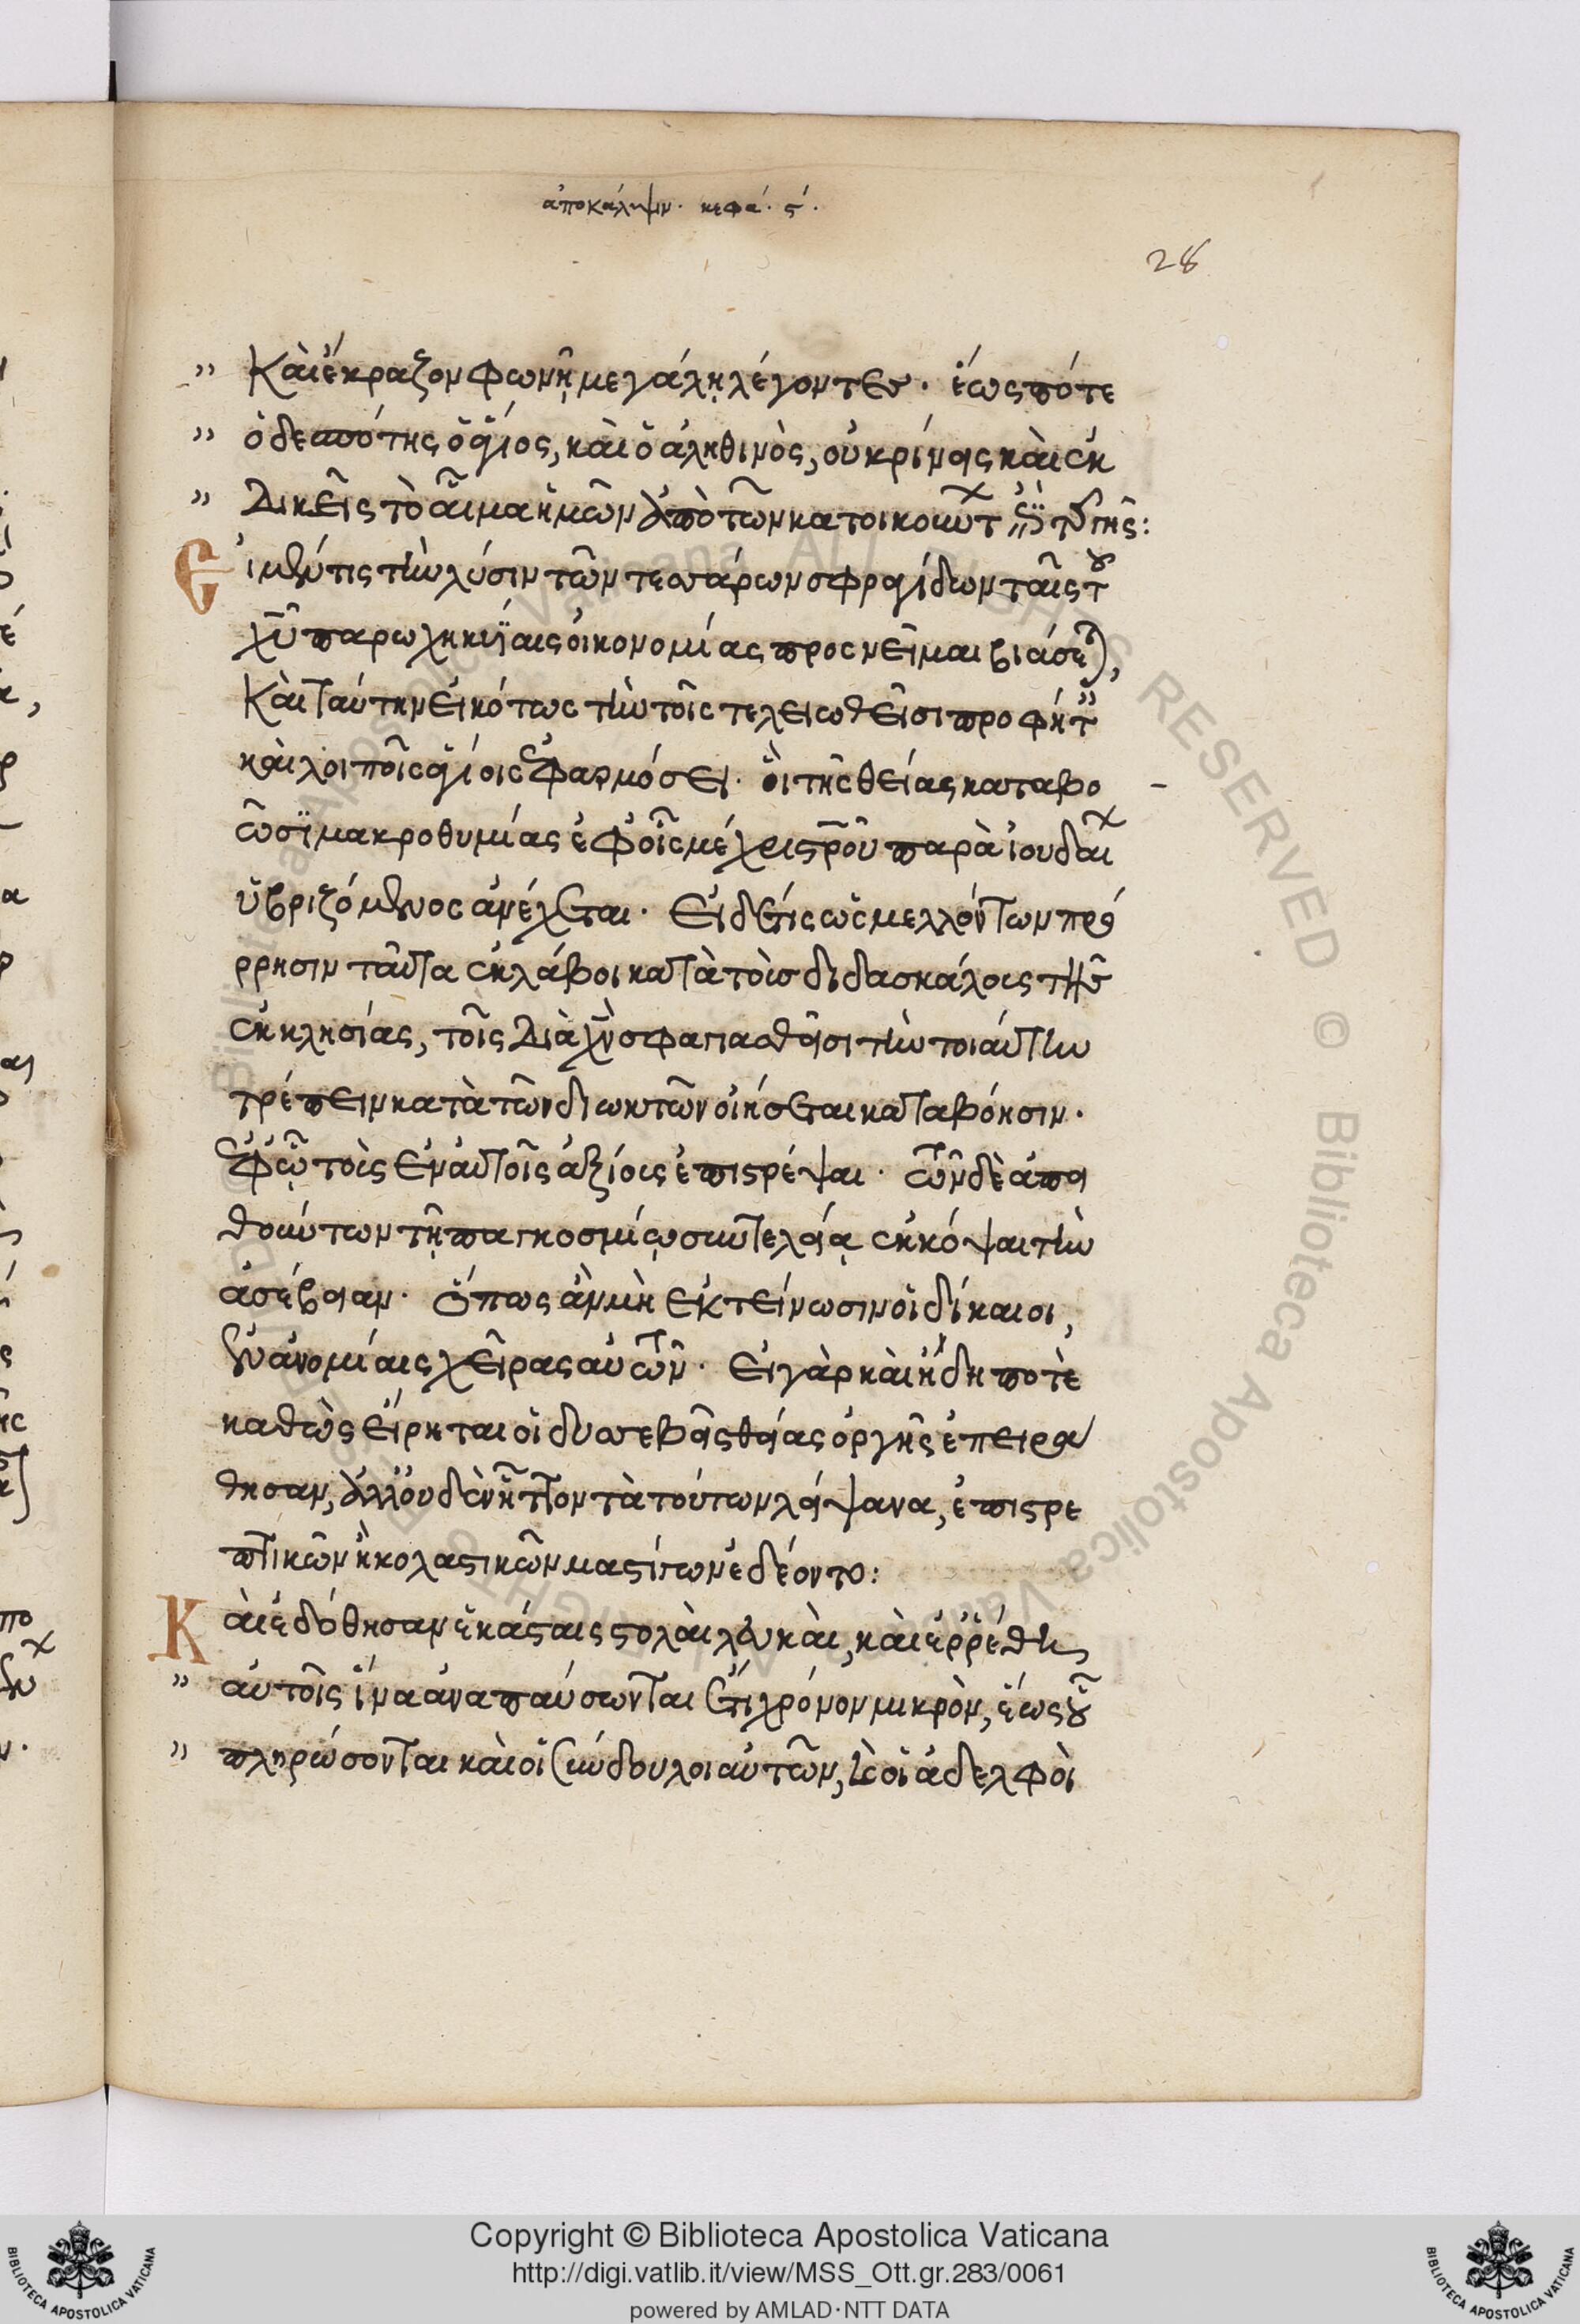 ἀποκάλυψιν. κεφά. ς΄.
28
" Καὶ ἔκραζον φωνῇ μεγάλῃ λέγοντες. ἕως πότε
" ὁ δεσπότης ὁ ἅγιος, καὶ ὁ ἀληθινὸς, οὐ κρίνεις καὶ ἐκ
" δικεῖς τὸ αἷμα ἡμῶν ἀπὸ τῶν κατοικούντ ἐπὶ τῆς γῆς:
Εἰ μέν τις τὴν λύσιν τῶν τεσσάρων σφραγίδων ταῖς τοῦ
χῦ παρωχηκυίαις οἰκονομίας προσνεῖμαι βιάσεται,
Καὶ ταύτην εἰκότως τὴν τοῖς τελειωθεῖσι προφήτ
καὶ λοιποῖς ἁγίοις ἐφαρμόσει. οἳ τῆς θείας καταβο
ῶσι μακροθυμίας ἐφ οἷς μέχρι σροῦ παρὰ ἰουδαί
ὑβριζόμενος ἀνέχεται. Εἰ δέ τις ὡς μελλόντων πρό
ρρησιν ταῦτα ἐκλάβοι κατὰ τοὺς διδασκάλους τῆς
ἐκκλησίας, τοῖς διὰ χν σφαγιασθεῖσι τὴν τοιαύτην
τρέπειν κατὰ τῶν διωκτῶν οἰήσεται καταβόησιν.
ἐφ ᾧ τοὺς ἐν αὐτοῖς ἀξίους ἐπιστρέψαι. τῶν δὲ ἀπει
θούντων τῇ παγκοσμίῳ συντελείᾳ ἐκκόψαι τὴν
ἀσέβειαν. ὅπως ἂν μὴ ἐκτείνωσιν οἱ δίκαιοι,
ἐν ἀνομίαις χεῖρας αὐτῶν. εἰ γὰρ καὶ ἤδη ποτὲ
καθὼς εἴρηται οἱ δυσσεβεῖς θείας ὀργῆς ἐπειρά
θησαν, ἀλλ οὐδὲν ἧττον τὰ τούτων λείψανα, ἐπιστρε
πτικῶν ἢ κολαστικῶν μαστίγων ἐδέοντο:
Καὶ ἐδόθησαν ἑκάσταις στολαὶ λευκαὶ, καὶ ἐρρέθη
" αὐτοῖς ἵνα ἀναπαύσωνται ἔτι χρόνον μικρὸν, ἕως οὗ
" πληρώσονται καὶ οἱ σύνδουλοι αὐτῶν, καὶ οἱ ἀδελφοὶ
Copyright © Biblioteca Apostolica Vaticana
http://digi.vatlib.it/view/MSS_Ott.gr.283/0061
powered by AMLAD·NTT DATA